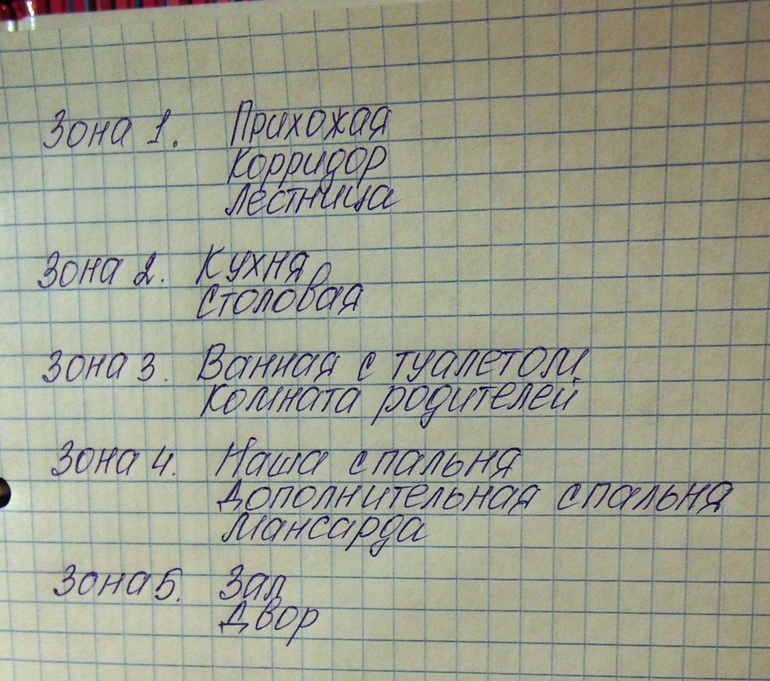 Зона 1. Прихожая
Корридор
Лестница
Зона 2. Кухня
Столовая
Зона 3. Ванная с туалетом
Комната родителей
Зона 4. Наша спальня
Дополнительная спальня
Мансарда
Зона 5. Зал
Двор